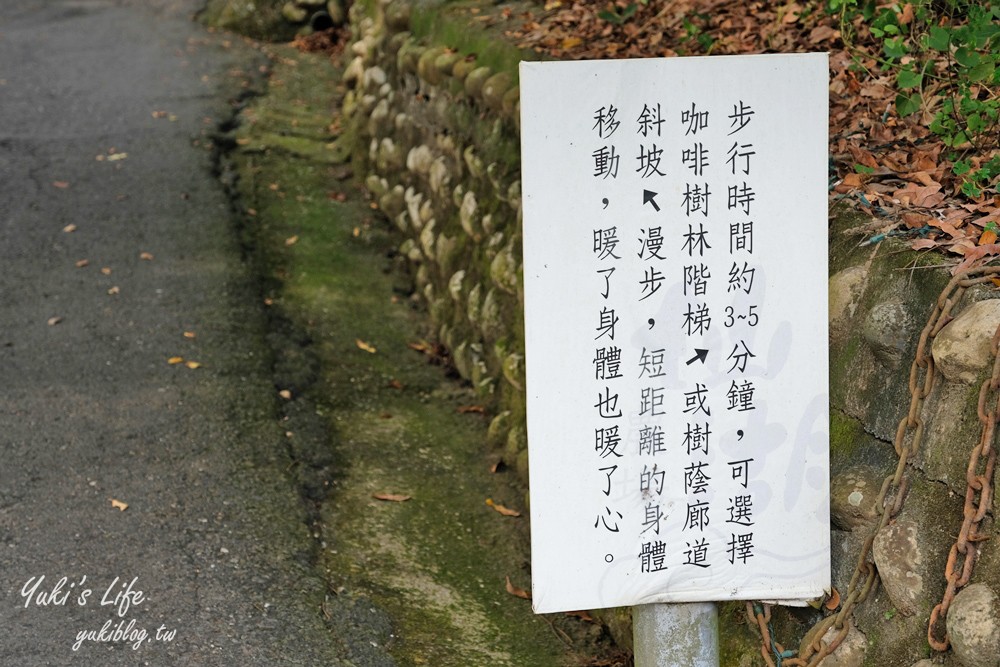 步行時間約3~5分鐘，可選擇
咖啡樹林階梯↗或樹蔭廊道
斜坡↖漫步，短距離的身體
移動，暖了身體也暖了心。
Yuki's Life
yukiblog.tw